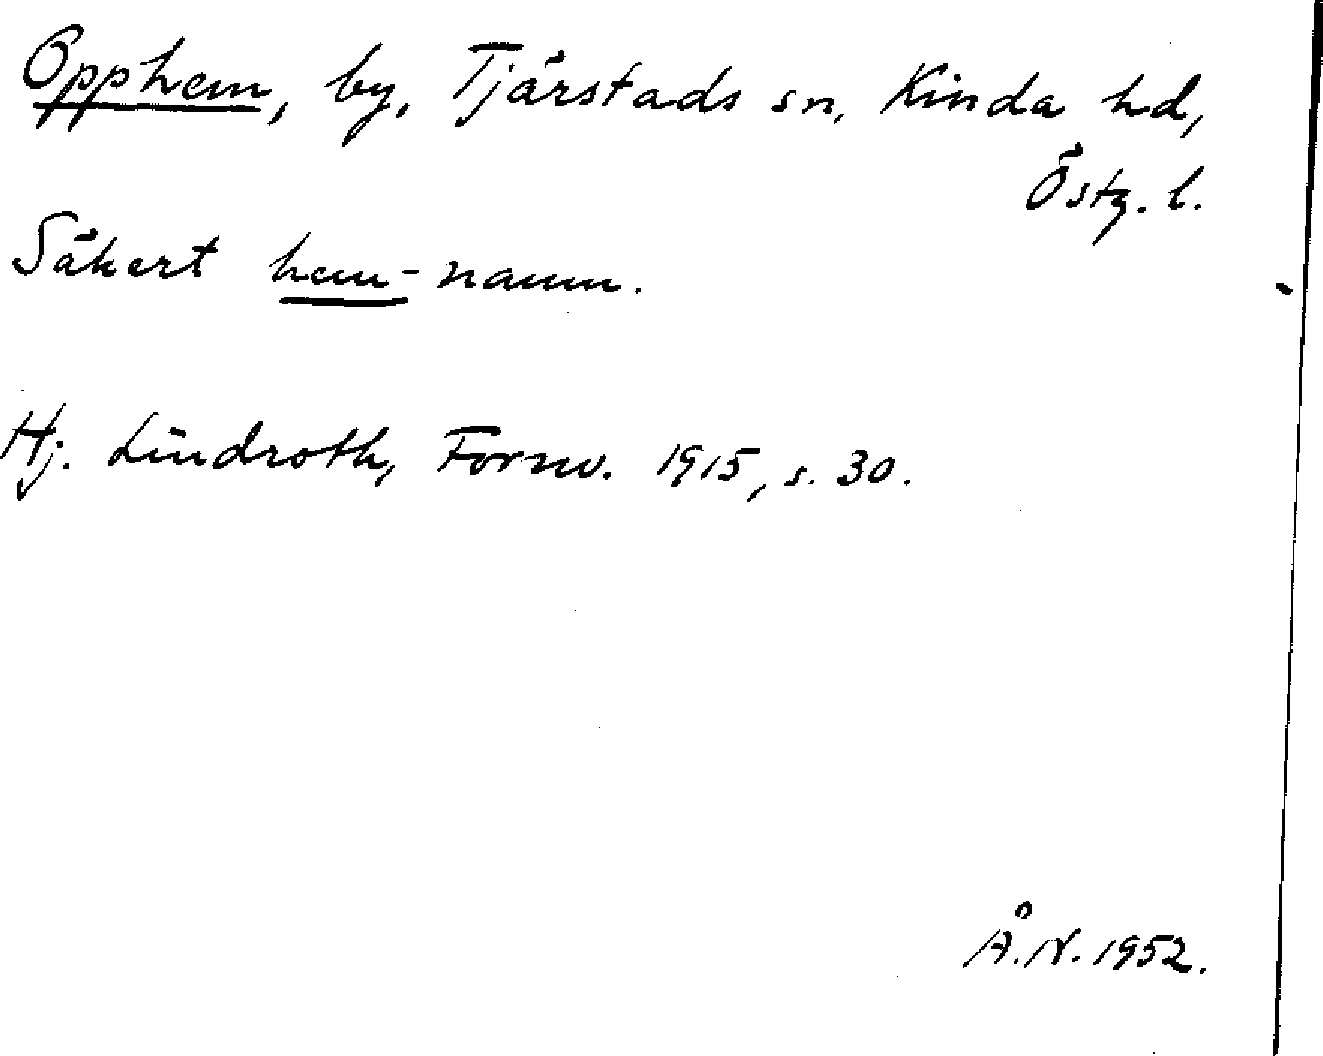 Opphem, by, Tjärstads sn, Kinda hd,
Östg. l.
Säkert hem-namn.
Hj. Lindroth, Fornv. 1915, s. 30.
Å.N. 1952.